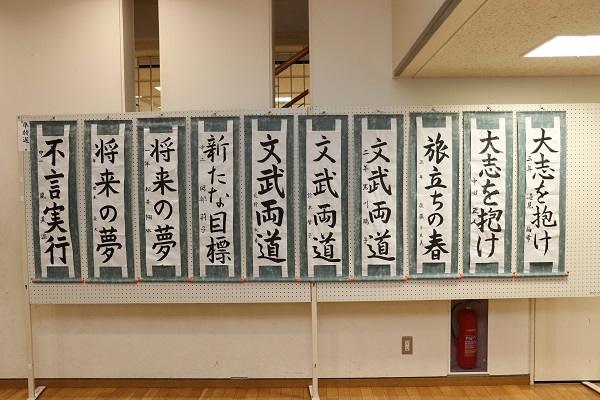 大志を抱け
大志を抱け
旅立ちの春
文武両道
文武両道
文武両道
新たな目標
将来の夢
将来の夢
不言実行
準特選